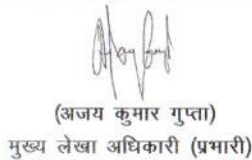 (अजय कुमार गुप्ता)
मुख्य लेखा अधिकारी (प्रभारी)